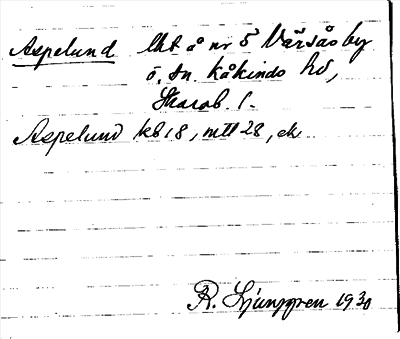 Aspelund lht å nr 5 Värsås by
ö. sn. Kåkinds hd,
Skarab. l.
Aspelund kb 18, mtl 28, ek
R. Ljunggren 1930